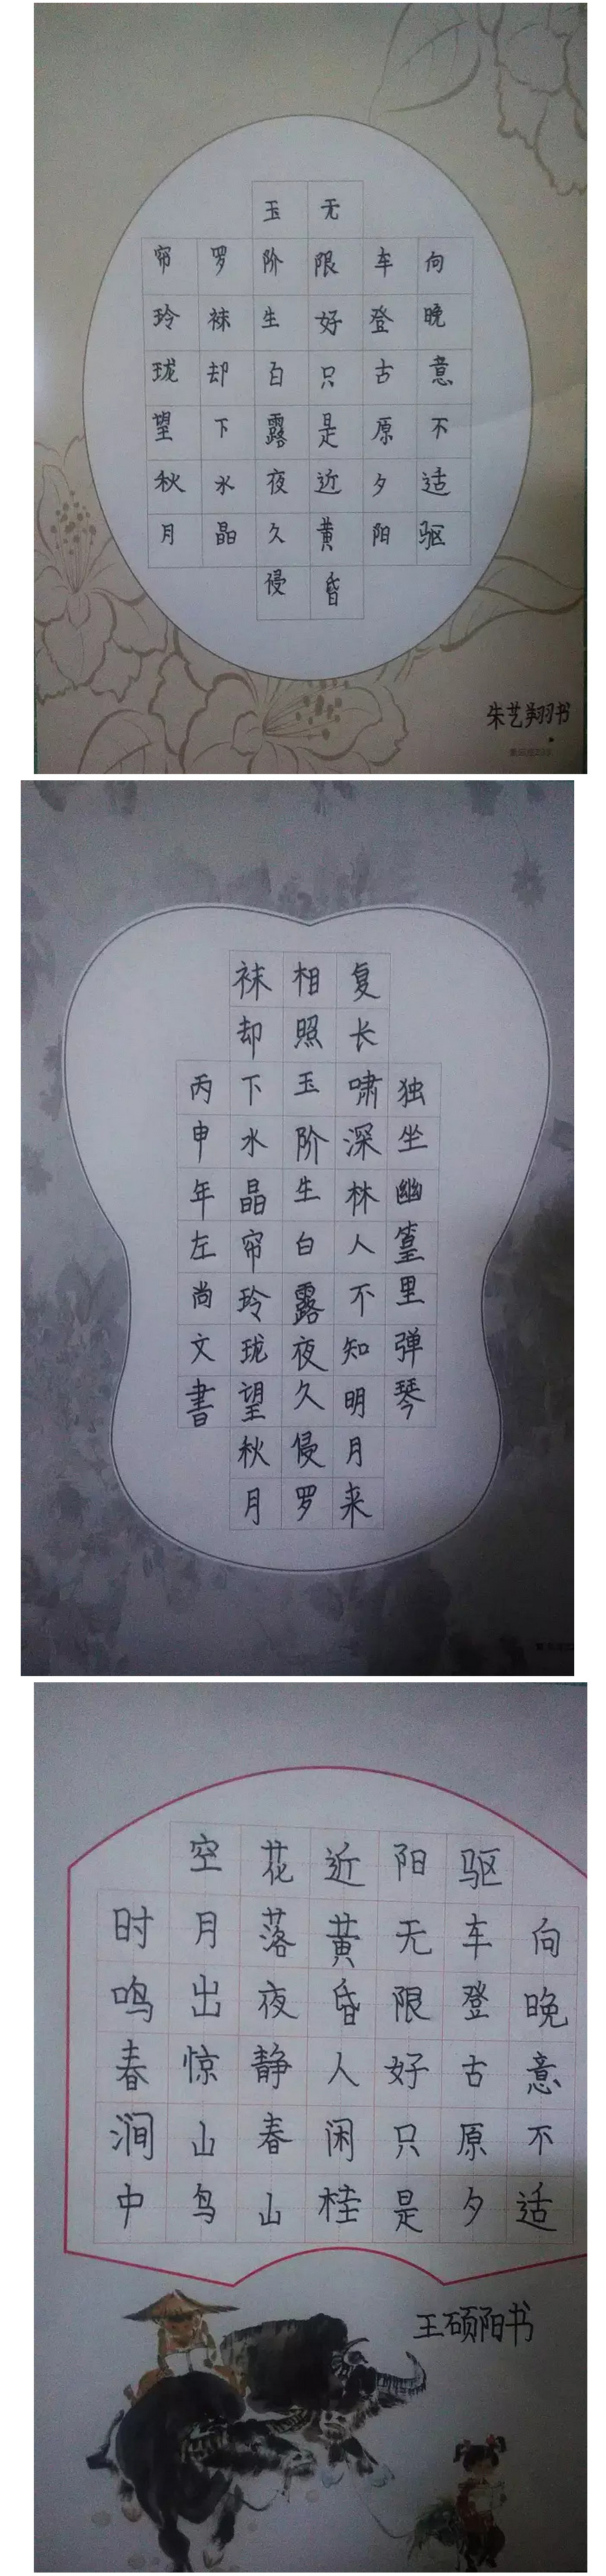 向晚意不适驱
车登古原夕阳
无限好只是近黄昏
玉阶生百露夜久侵
罗袜却下水晶
帘玲珑望秋月
朱艺翔书
独坐幽篁里弹琴
复长啸深林人不知明月来
相照玉阶生白露夜久侵罗
袜却下水晶帘玲珑望秋月
丙申年左尚文書
向晚意不适
驱车登古原夕
阳无限好只是
近黄昏人闲桂
花落夜静春山
空月出惊山鸟
时鸣春涧中
王硕阳书